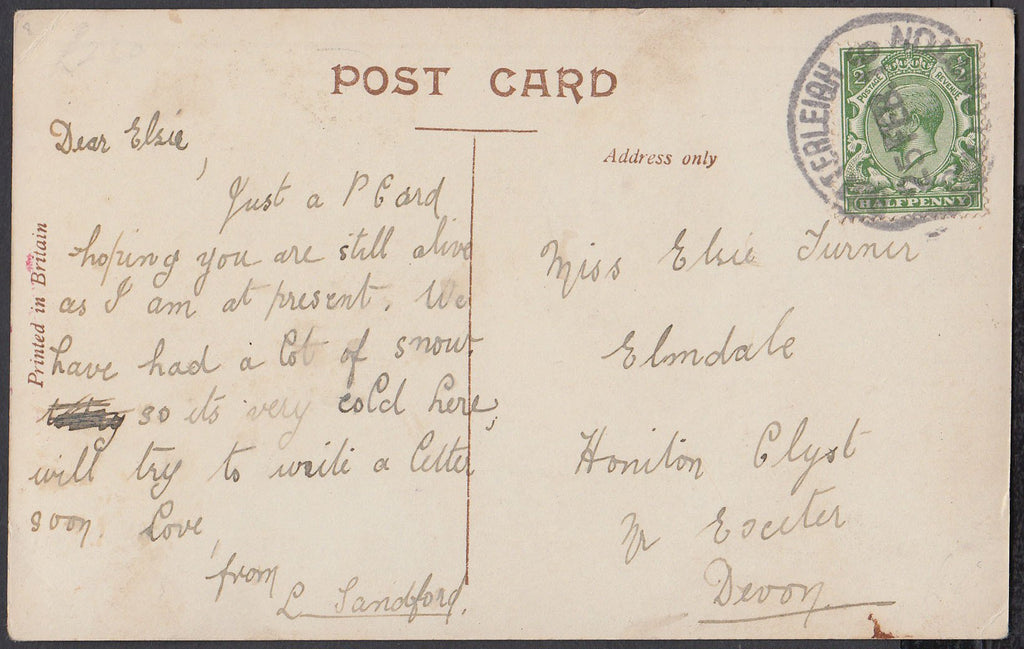 POST CARD
Address only
Printed in Britain
Dear Elsie,
Just a P Card
hoping you are still alive
as I am at present. We
have had a lot of snow
so its very cold here,
will try to write a letter
soon. Love,
from
L Sandford.
Miss Elsie Turner
Elmdale
Honiton Clyst
Nr Exeter
Devon
POSTAGE REVENUE
½ ½
HALFPENNY